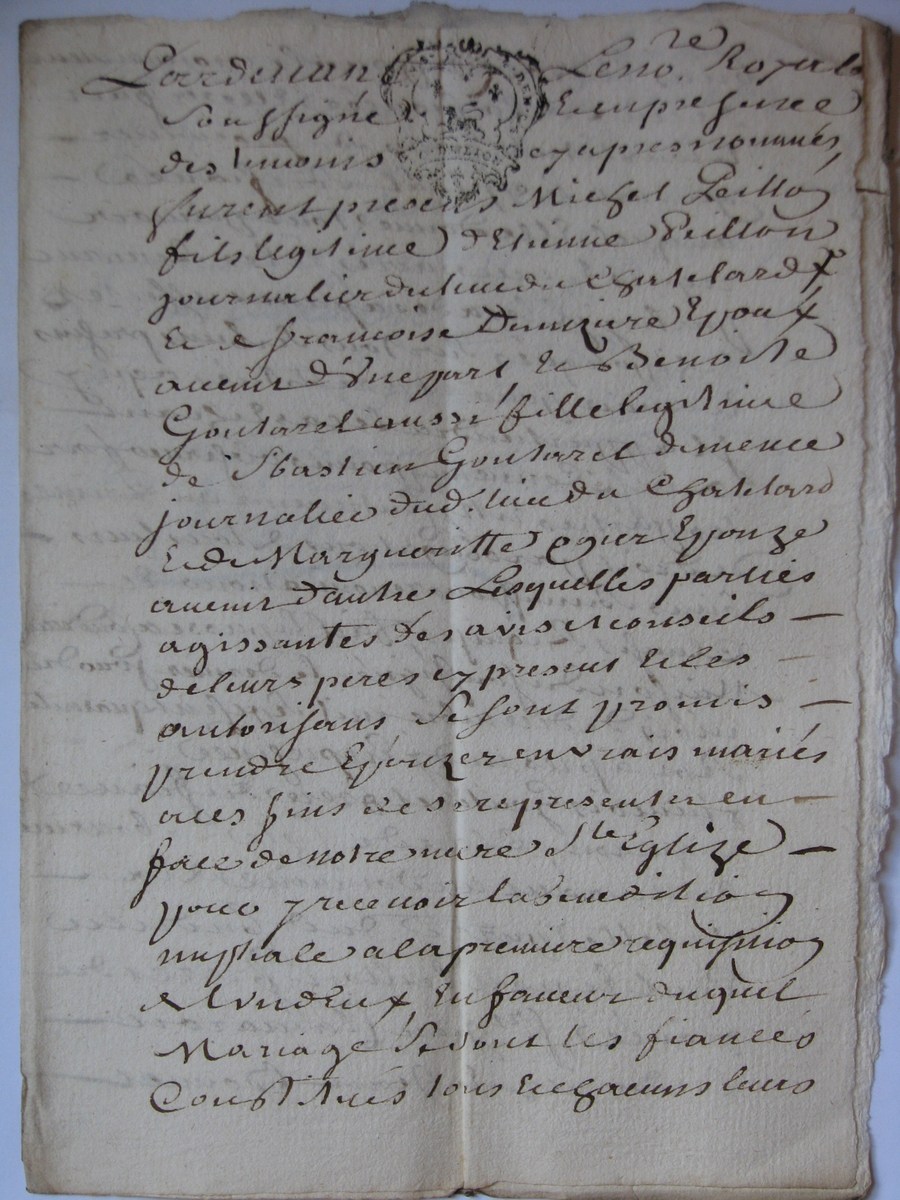 Pardevan Le no.re Royal
Soussigné Et en presence
des temoins cy apres nommés
furent presens Michel Peillon
fils legitime d'Etienne Peillon
journalier du lieu du Chatelard
Et de francoise Epoux
avenir d'Une part Et Benoite
Goutarel aussi fille legitime
de Sbastien Goutarel demence
journalier dud. lieu du Chatelard
Et de Margueritte ogier Epouze
avenir d'autre Lesquelles parties
agissantes des avis et conseils —
de leurs peres cy presens Et les —
autorisans Se sont promis —
prendre Epouzer en vrais mariés
a ces fins de se representer en —
face de notre mere Ste Eglize —
pour y recevoir la benediction
nuptiale a la premiere requisition
de l'un d'Eux En faveur duquel
Mariage Se sont les fiancés
Constitués tous Et chacuns leurs